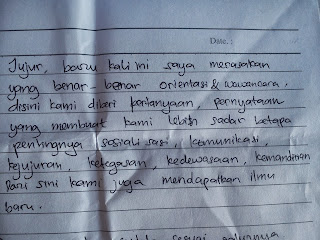 Date :
Jujur, baru kali ini saya merasakan
yang benar-benar orientasi & wawancara,
disini kami diberi pertanyaan, pernyataan
yang membuat kami lebih sadar betapa
pentingnya sosialisasi, komunikasi,
kejujuran, ketegasan, kedewasaan, kemandirian
dari sini kami juga mendapatkan ilmu
baru.